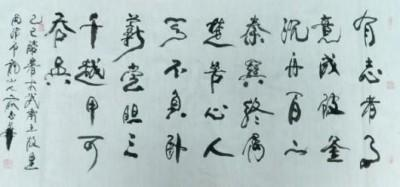 有志者事
竟成破釜
沉舟百二
秦關終屬
楚苦心人
天不負卧
薪嘗胆三
千越甲可
吞吳